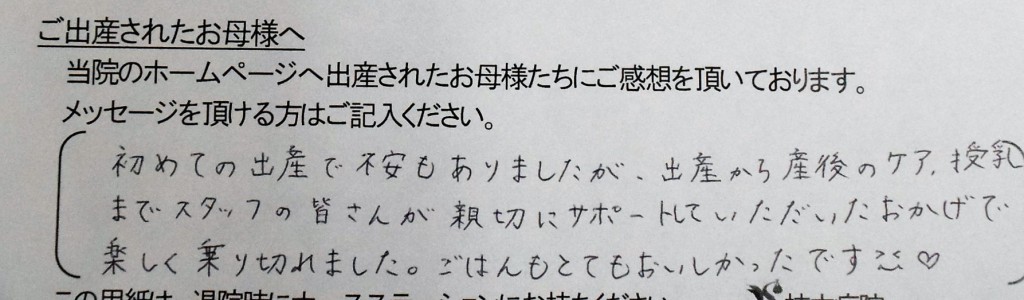 ご出産されたお母様へ
当院のホームページへ出産されたお母様たちにご感想を頂いております。
メッセージを頂ける方はご記入ください。
初めての出産で不安もありましたが、出産から産後のケア、授乳
までスタッフの皆さんが親切にサポートしていただいたおかげで
楽しく乗り切れました。ごはんもとてもおいしかったです♡
この用紙は、退院時にナースステーションにお持ちください